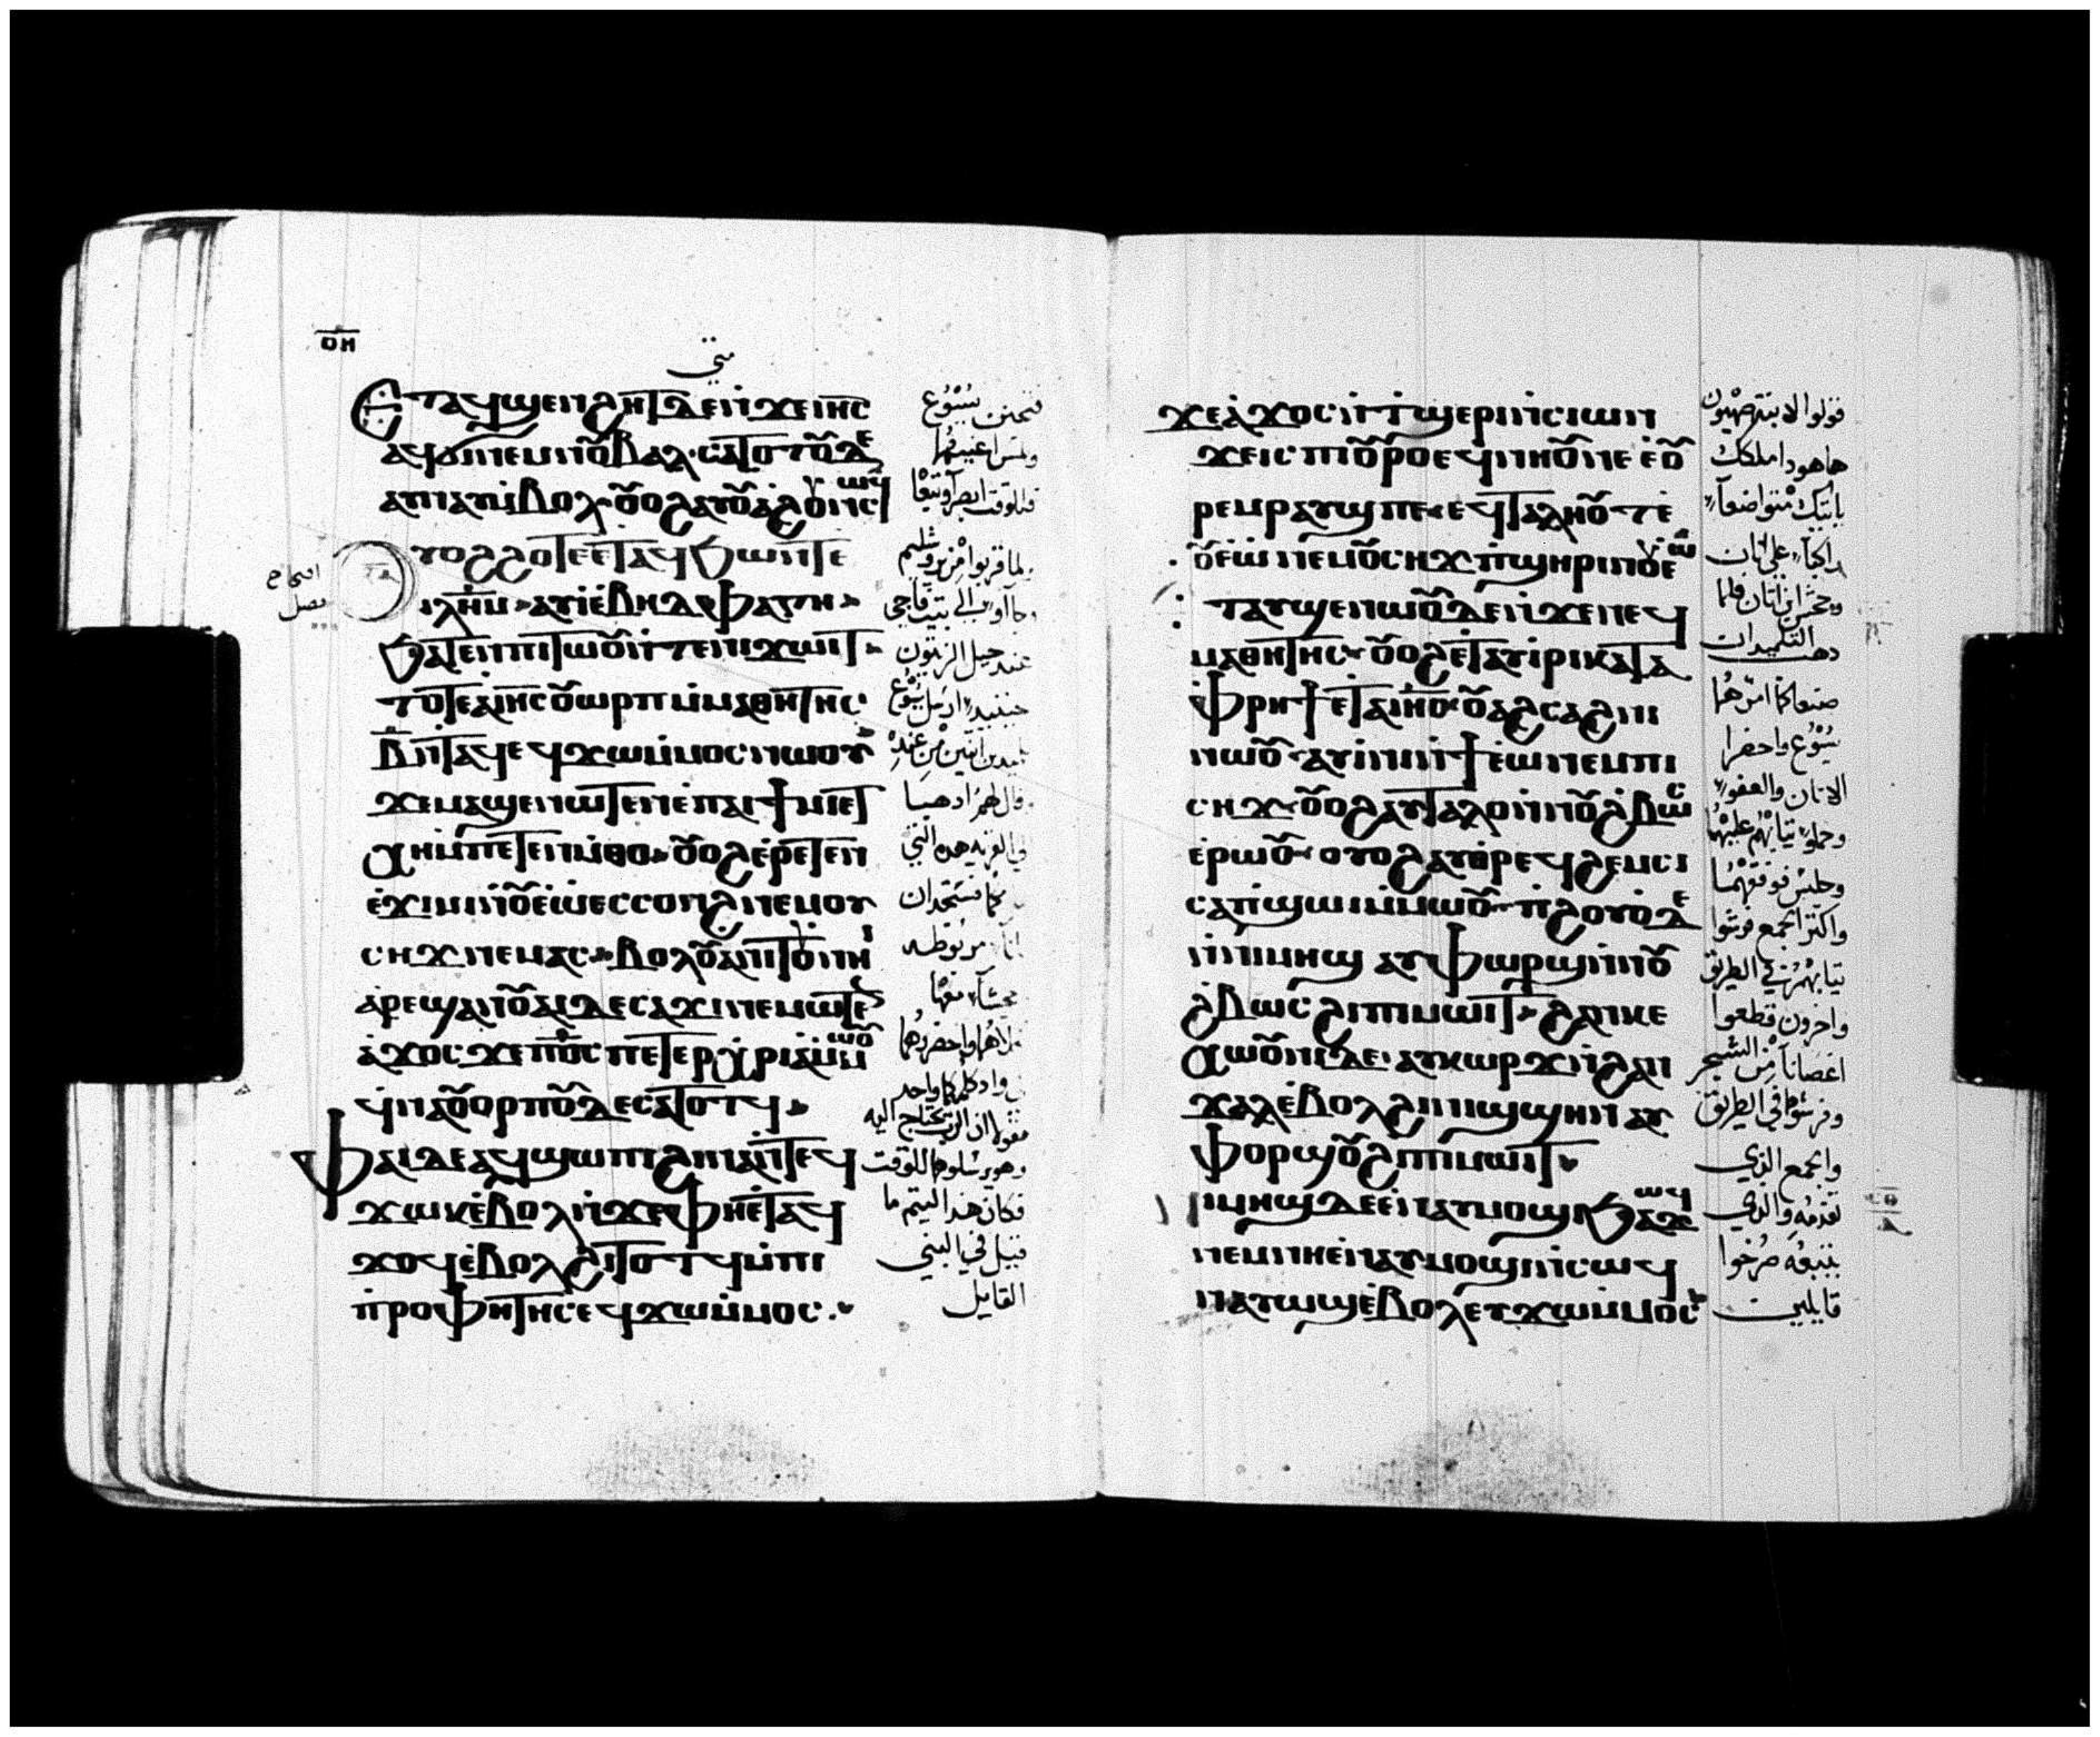 ⲟⲏ
متى
Ⲉⲧⲁϥϣⲉⲛϩⲏⲧⲇⲉⲛϫⲉⲓⲏⲥ
ⲁϥϭⲓⲛⲉⲙⲛⲟⲩⲃⲁⲗ ⲥⲁⲧⲟⲧⲟⲩⲇⲉ
ⲁⲩⲛⲁⲩⲙⲃⲟⲗ ⲟⲩⲟϩⲁⲩⲟⲩⲁϩⲟⲩⲛⲥⲱϥ
ⲩⲟϩϩⲟⲧⲉⲉⲧⲁϥϧⲱⲛⲧⲉ
ⲓⲗⲏⲙ ⲁⲩⲓⲉⲃⲏⲇⲫⲁⲅⲏ
ϧⲁⲧⲉⲛⲡⲓⲧⲱⲟⲩⲛⲧⲉⲛⲓϫⲱⲓⲧ
ⲧⲟⲧⲉⲁⲓⲏⲥⲟⲩⲱⲣⲡⲙⲙⲁⲑⲏⲧⲏⲥ
ⲃⲛⲧⲁϥⲉϥϫⲱⲙⲙⲟⲥⲛⲱⲟⲩ
ϫⲉⲙⲁϣⲉⲛⲱⲧⲉⲛⲉⲡⲁⲓϯⲙⲓⲉⲧ
ⲭⲏⲙⲡⲉⲧⲉⲛⲙⲑⲟ ⲟⲩⲟϩⲉⲣⲉⲧⲉⲛ
ⲉϫⲓⲙⲓⲛⲟⲩⲉⲱⲉⲥⲥⲟⲛϩⲛⲉⲙⲟⲩ
ⲥⲏϫⲛⲉⲙⲁⲥ ⲃⲟⲗⲟⲩⲁⲛⲓⲧⲟⲩⲛⲏⲓ
ⲁⲣⲉϣⲁⲛⲟⲩⲁⲓⲇⲉⲥⲁϫⲓⲛⲉⲙⲱⲧⲉⲛ
ⲁϫⲟⲥ ϫⲉⲡⲟⲥⲡⲉⲧⲉⲣⲭⲣⲓⲁⲙⲙⲱⲟⲩ
ϥⲛⲁⲟⲩⲟⲣⲡⲟⲩⲇⲉⲥⲁⲧⲟⲧϥ
ⲫⲁⲓⲇⲉⲁϥϣⲱⲡⲓϩⲓⲛⲁⲛⲧⲉϥ
ϫⲱⲕⲉⲃⲟⲗⲛϫⲉⲫⲏⲉⲧⲁϥ
ϫⲟϥⲉⲃⲟⲗϩⲓⲧⲟⲧϥⲙⲡⲓ
ⲡⲣⲟⲫⲏⲧⲏⲥⲉϥϫⲱⲙⲙⲟⲥ
فتحنن يسوع
ولمس اعينهما
فللوقت ابصرا وتبعاه
ولما قربوا من يروشليم
عند جبل الزيتون
حينيذ ارسل يسوع
قال لهما اذهبا
فكان هذا ليتم ما
قيل في النبي
القايل
ϫⲉⲁϫⲟⲥⲛⲧϣⲉⲣⲓⲛⲥⲓⲱⲛ
ϫⲉⲓⲥ ⲡⲟⲩⲣⲟⲉϥⲛⲏⲟⲩⲛⲉ ⲉⲟⲩ
ⲣⲉⲙⲣⲁⲩϣⲡⲉ ⲉϥⲧⲁⲗⲏⲟⲩⲧⲉ
ⲟⲩⲉⲱⲛⲉⲙⲟⲩⲥⲏϫⲡϣⲏⲣⲓⲛⲟⲩⲉⲱ
ⲧⲁⲩϣⲉⲛⲱⲟⲩⲇⲉⲛϫⲉⲛⲉϥ
ⲙⲁⲑⲏⲧⲏⲥ ⲟⲩⲟϩⲉⲧⲁⲩⲓⲣⲓⲕⲁⲧⲁ
ⲫⲣⲏϯⲉⲧⲁⲓⲏⲥ ⲟⲩⲁϩⲥⲁϩⲛⲓ
ⲛⲱⲟⲩ ⲁⲩⲓⲛⲓⲛϯⲉⲱⲛⲉⲙⲡⲓ
ⲥⲏϫ ⲟⲩⲟϩⲁⲩⲧⲁⲗⲟⲛⲛⲟⲩϩⲃⲱⲥ
ⲉⲣⲱⲟⲩ ⲟⲩⲟϩⲁⲩⲑⲣⲉϥϩⲉⲙⲥⲓ
ⲥⲁⲡϣⲱⲓⲙⲙⲱⲟⲩ ⲡϩⲟⲩⲟⲇⲉ
ⲛⲛⲓⲙⲏϣ ⲁⲩⲫⲱⲣϣⲛⲛⲟⲩ
ϩⲃⲱⲥϩⲓⲡⲓⲙⲱⲓⲧ ϩⲁⲛⲕⲉ
ⲭⲱⲟⲩⲛⲓⲇⲉ ⲁⲩⲕⲱⲣϫⲛϩⲁⲛ
ϫⲁⲗⲉⲃⲟⲗϩⲓⲛⲓϣϣⲏⲛ ⲁⲩ
ⲫⲟⲣϣⲟⲩϩⲓⲡⲓⲙⲱⲓⲧ
ⲛⲓⲙⲏϣⲇⲉⲉⲛⲁⲩⲙⲟϣⲓϧⲁϫⲱϥ
ⲛⲉⲙⲛⲏⲉⲛⲁⲩⲙⲟϣⲓⲛⲥⲱϥ
ⲛⲁⲩⲱϣⲉⲃⲟⲗⲉⲩϫⲱⲙⲙⲟⲥ
قولوا لابنة صهيون
هاهوذا ملكك
ياتيك متواضعا
راكبا على اتان
وجحش ابن اتان فلما
ذهب التلميذان
صنعا كما امرهما
يسوع واحضرا
الاتان والعفو
وحملوا ثيابهم عليهما
وجلس فوقهما
واكثر الجمع فرشوا
ثيابهم في الطريق
واخرون قطعوا
اغصانا من الشجر
وفرشوها في الطريق
والجمع الذي
تقدمه والذي
يتبعه صرخوا
قايلين